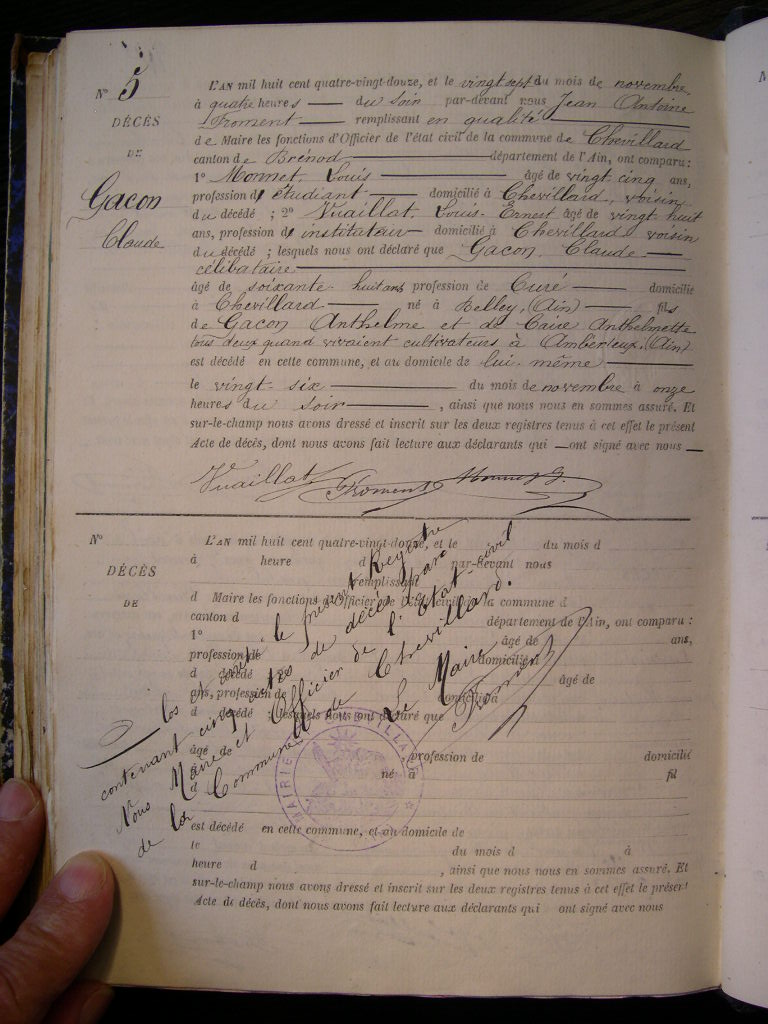 N° 5
DÉCÈS
DE
Gacon
Claude
L'AN mil huit cent quatre-vingt-douze, et le vingt sept du mois de novembre
à quatre heures du soir par-devant nous Jean Antoine
Froment remplissant en qualité
de Maire les fonctions d'Officier de l'état civil de la commune de Chevillard
canton de Brénod département de l'Ain, ont comparu :
1° Monnet, Louis âgé de vingt cinq ans,
profession d'étudiant domicilié à Chevillard, voisin
du décédé ; 2° Vuaillat, Louis-Ernest âgé de vingt huit
ans, profession d'instituteur domicilié à Chevillard voisin
du décédé ; lesquels nous ont déclaré que Gacon Claude
célibataire
âgé de soixante huit ans profession de Curé domicilié
à Chevillard né à Belley, (Ain) fils
de Gacon Anthelme et de Caire Anthelmette
tous deux quand vivaient cultivateurs à Ambérieux, (Ain)
est décédé en cette commune, et au domicile de lui-même
le vingt-six du mois de novembre à onze
heures du soir, ainsi que nous nous en sommes assuré. Et
sur-le-champ nous avons dressé et inscrit sur les deux registres tenus à cet effet le présent
Acte de décès, dont nous avons fait lecture aux déclarants qui ont signé avec nous
Vuaillat Froment Monnet
N°
DÉCÈS
DE
L'AN mil huit cent quatre-vingt-douze, et le du mois d
à heure d par-devant nous
remplissant
d Maire les fonctions d'Officier de l'état civil de la commune d
canton d département de l'Ain, ont comparu :
1° âgé de ans,
profession de domicilié
d décédé ; 2° âgé de
ans, profession de domicilié à
d décédé ; lesquels nous ont déclaré que
âgé de profession de domicilié
à né à fil
d
est décédé en cette commune, et au domicile de
le du mois d à
heure d, ainsi que nous nous en sommes assuré. Et
sur-le-champ nous avons dressé et inscrit sur les deux registres tenus à cet effet le présent
Acte de décès, dont nous avons fait lecture aux déclarants qui ont signé avec nous
Clos et arrêté le présent Registre
contenant cinq actes de décès par
Nous Maire et Officier de l'Etat-civil
de la Commune de Chevillard.
Le Maire
Froment
MAIRIE DE CHEVILLARD